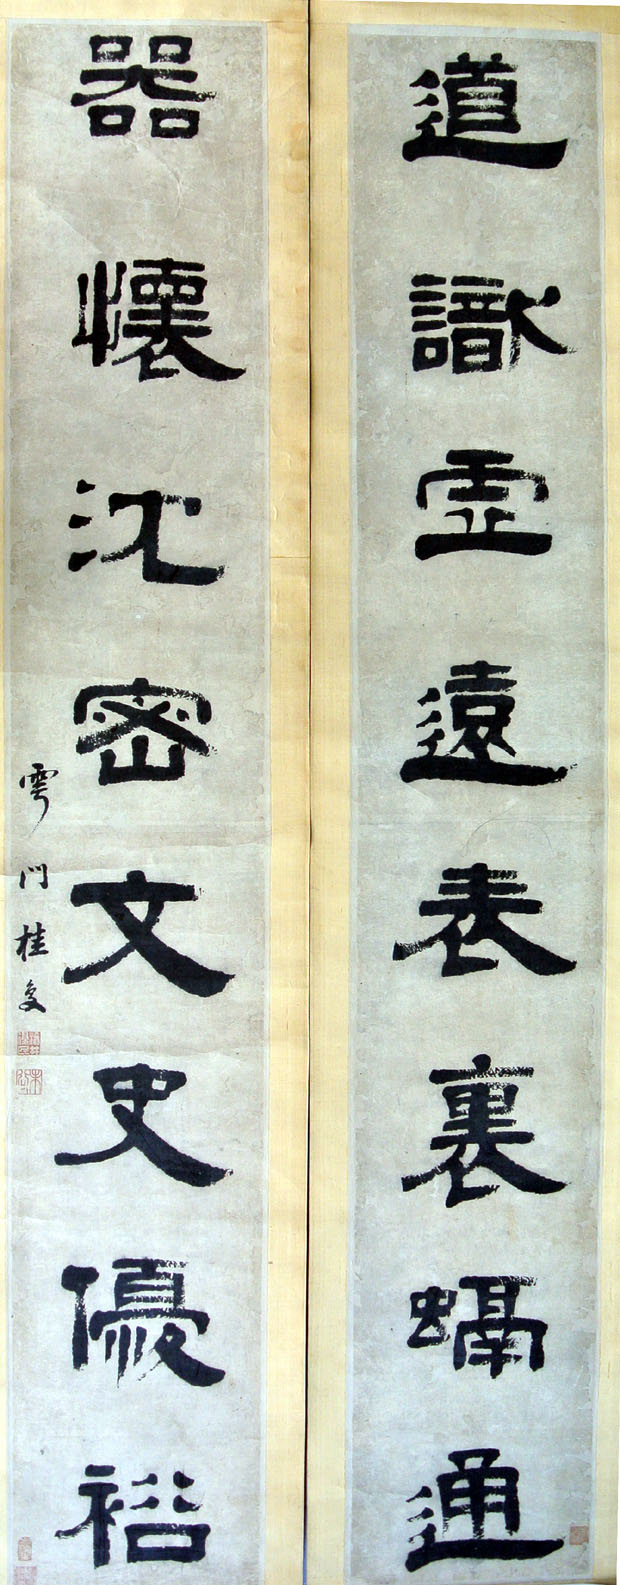 道識虛遠表裏螎通
器懷沈密文史優裕
雩門桂复